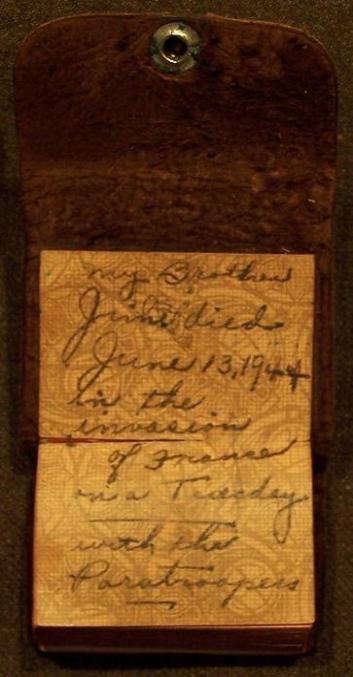 my Brother
Jime died
June 13, 1944
in the
invasion
of France
on a Tuesday
with the
Paratroopers